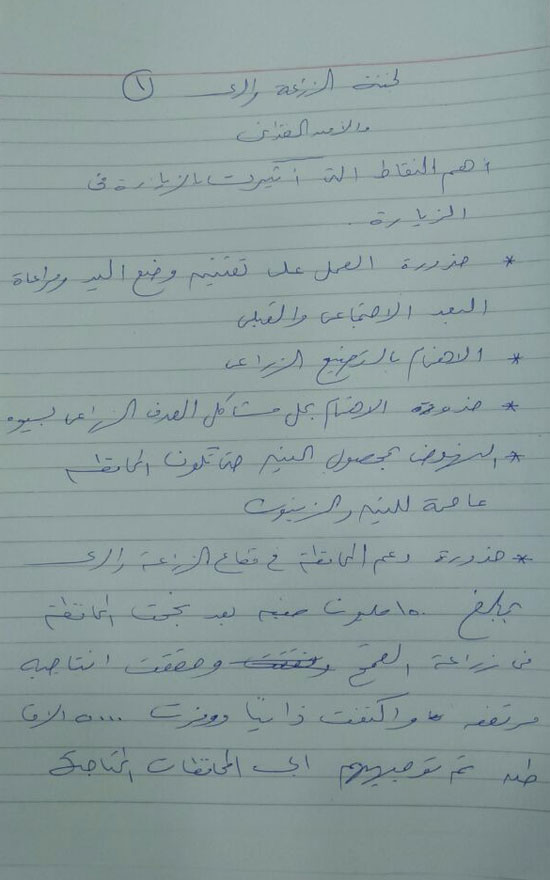 لجنة الزراعة والرى ١
والأمن الغذائى
أهم النقاط التى أثيرت بالزيارة فى
الزيارة .
* ضرورة العمل على تقنين وضع اليد ومراعاة
البعد الاجتماعى والقبلى
* الاهتمام بالتصنيع الزراعى
* ضرورة الاهتمام بحل مشاكل الصرف الزراعى بسيوه
* النهوض بمحصول التين حتى تكون المحافظة
عاصمة للتين والزيتون
* ضرورة دعم المحافظة فى قطاع الزراعة والرى
بمبلغ ١٠٠ مليون جنيه بعد نجحت المحافظة
فى زراعة القمح وحققت انتاجيه
مرتفعه واكتفت ذاتياً ووفرت ٥٠٠٠ الاف
طن تم توجيههم الى المحافظات المحتاجة